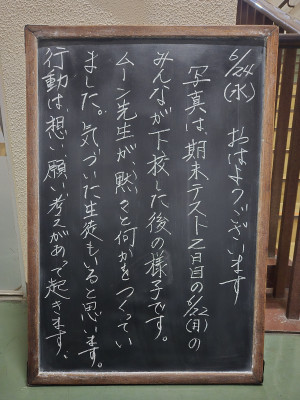 6/24(水) おはようございます
写真は、期末テスト2日目の6/22(月)の
みんなが下校した後の様子です。
ムーン先生が、黙々と何かをつくってい
ました。気づいた生徒もいると思います。
行動は、想い、願い、考えがあって起きます。